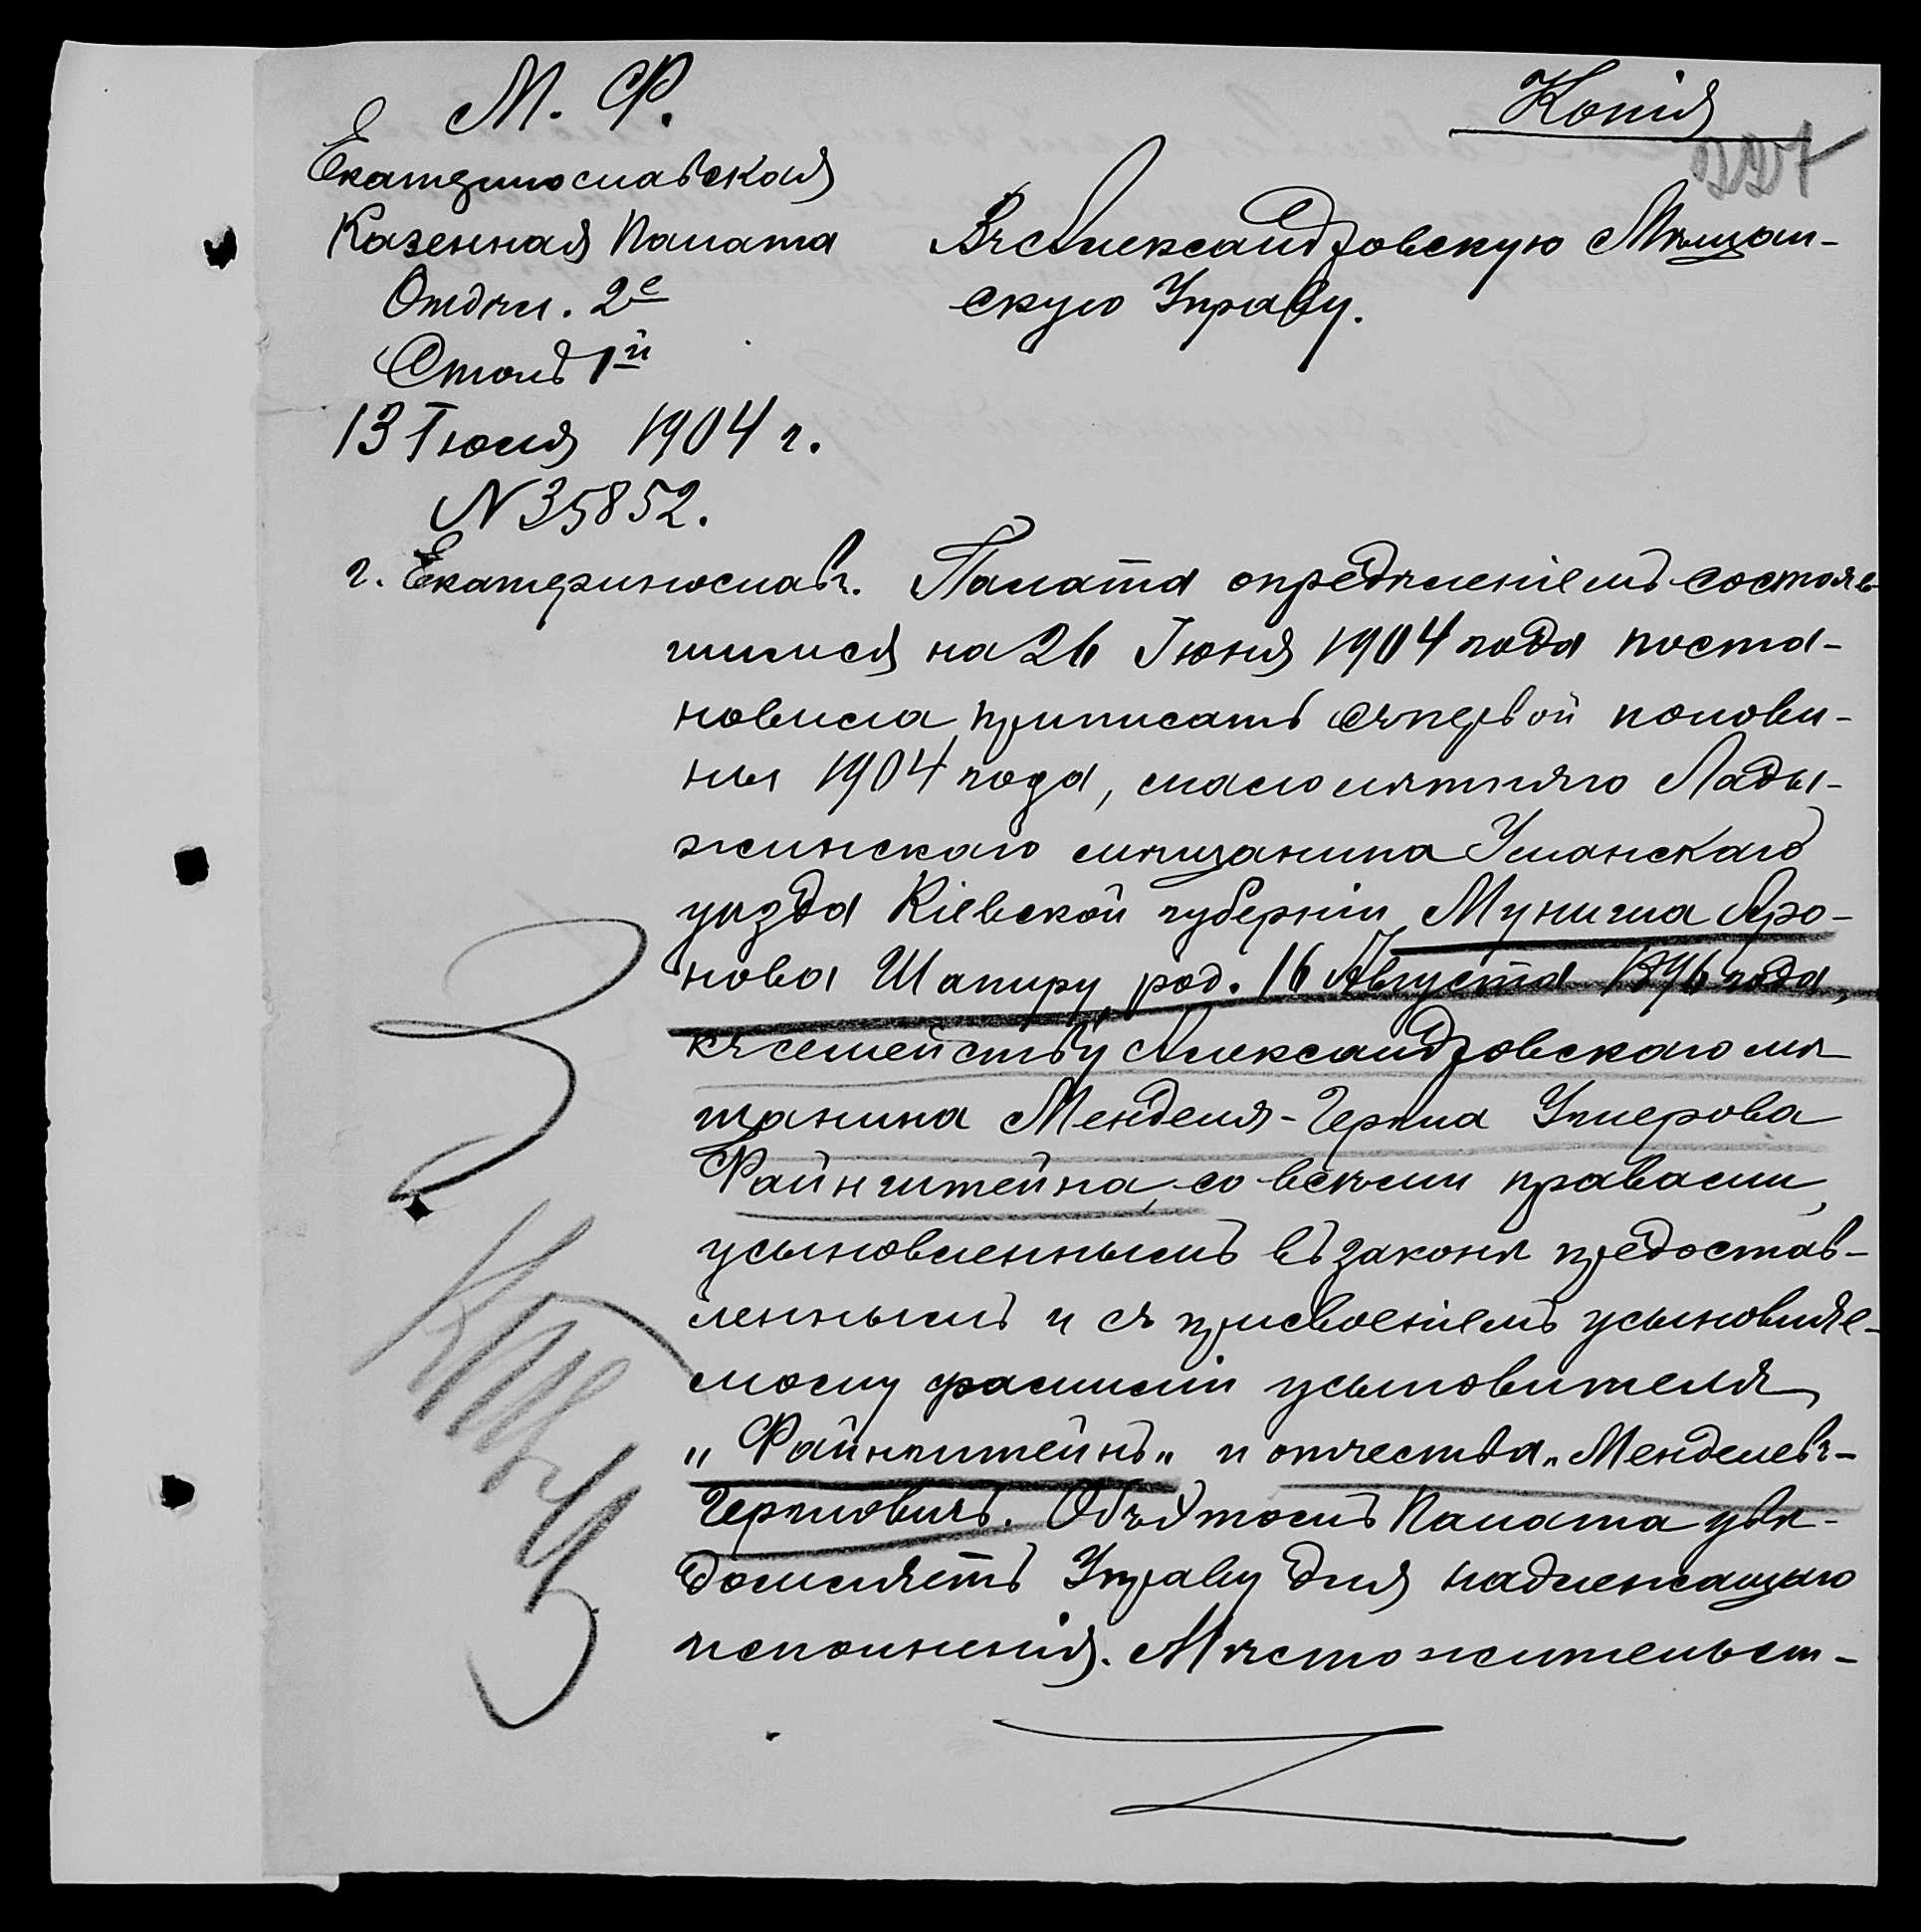 М. Ф.
Копія
Екатеринославская
Казенная Палата
Отдѣл. 2е
Столъ 1й
13 Іюля 1904 г.
N 35852.
г. Екатеринославъ.
227
Въ Александровскую Мѣщан-
скую Управу.
Палата опредѣленіемъ состояв-
шимся на 26 Іюня 1904 года поста-
новила приписать съ первой полови-
ны 1904 года, малолѣтняго Лады-
жинскаго мѣщанина Уманскаго
уѣзда Кіевской губерніи Муниша Аро-
нова Шапиру, род. 16 Августа 1896 года,
къ семейству Александровскаго мѣ
щанина Менделя-Герша Ушерова
Файнштейна, со всѣми правами,
усыновленнымъ въ законѣ предостав-
леннымъ и съ присвоеніемъ усыновляе-
мому фамиліи усыновителя
"Файнштейнъ" и отчества "Менделевъ-
Гершовичъ. Объ этомъ Палата увѣ-
домляетъ Управу для надлежащаго
исполненія. Мѣстожительст-